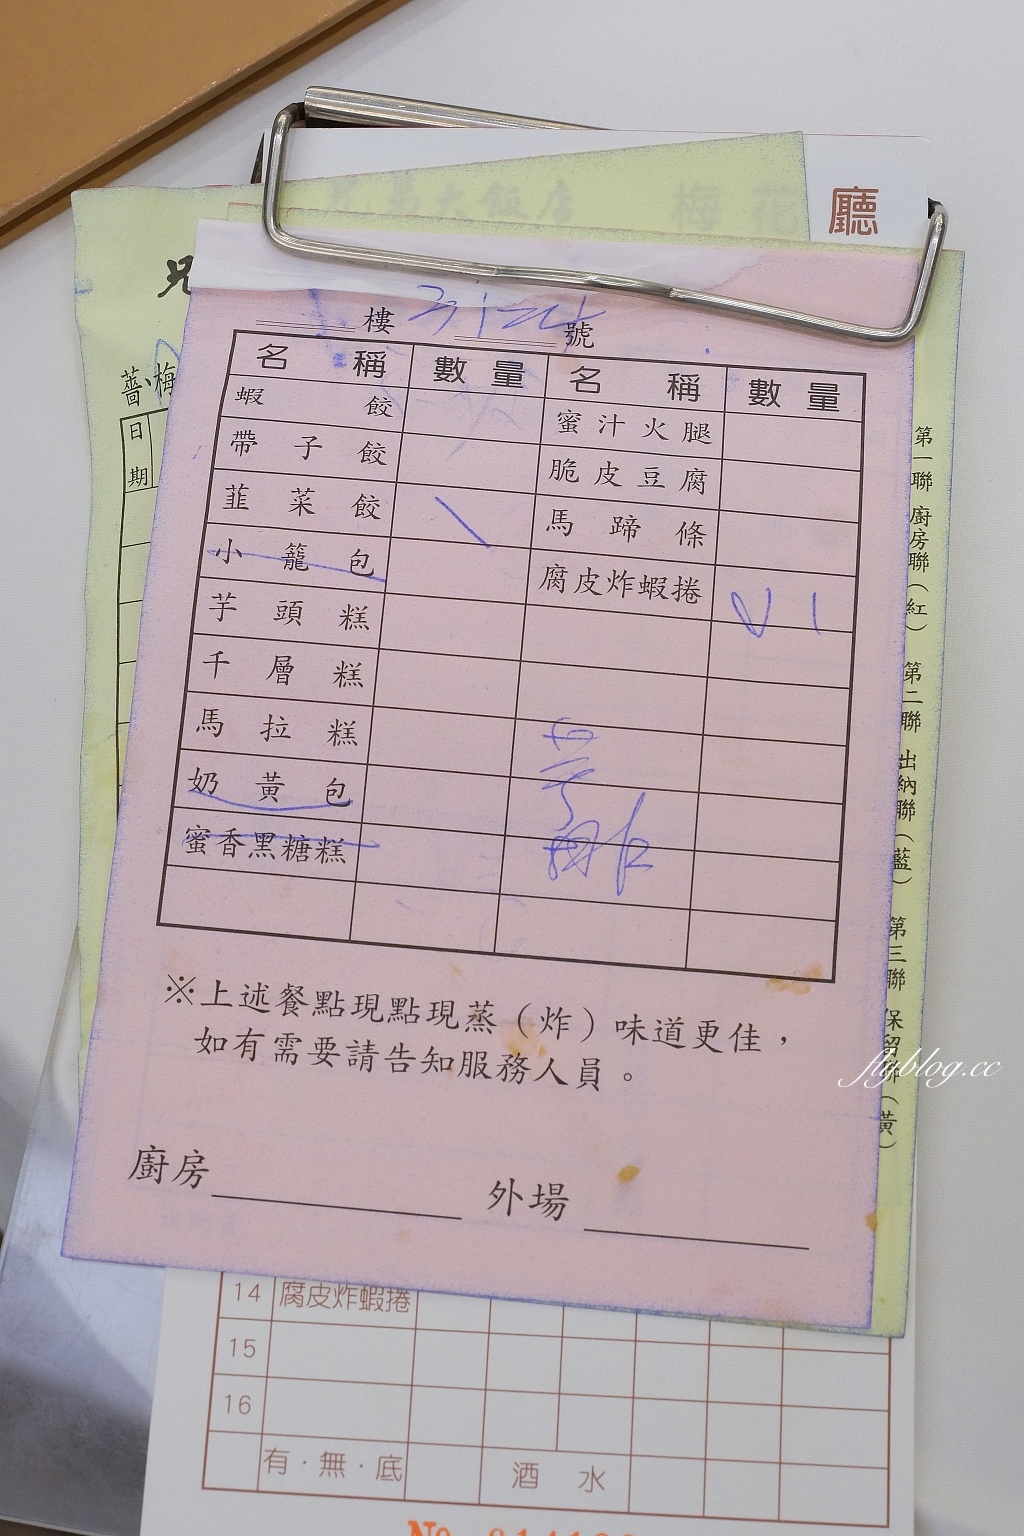 兄弟大飯店 梅花廳
兄
樓 號
薔、梅
日期
名稱 數量 名稱 數量
蝦餃 蜜汁火腿
帶子餃 脆皮豆腐
韮菜餃 馬蹄條
小籠包 腐皮炸蝦捲
芋頭糕
千層糕
馬拉糕
奶黃包
蜜香黑糖糕
※上述餐點現點現蒸（炸）味道更佳，
如有需要請告知服務人員。
廚房 外場
第一聯 廚房聯（紅） 第二聯 出納聯（藍） 第三聯 保留聯（黃）
flyblog.cc
14 腐皮炸蝦捲
15
16
有·無·底 酒水
No